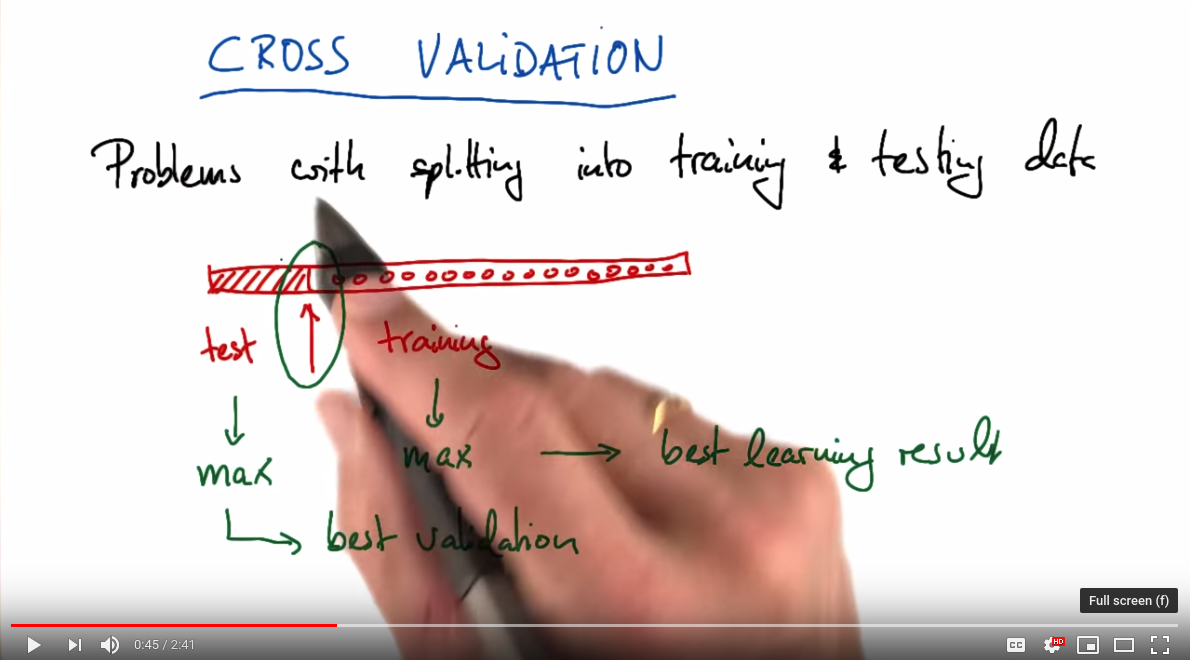 CROSS VALIDATION
Problems with splitting into training & testing data
test training
max max → best learning result
best validation
Full screen (f)
0:45 / 2:41
CC HD